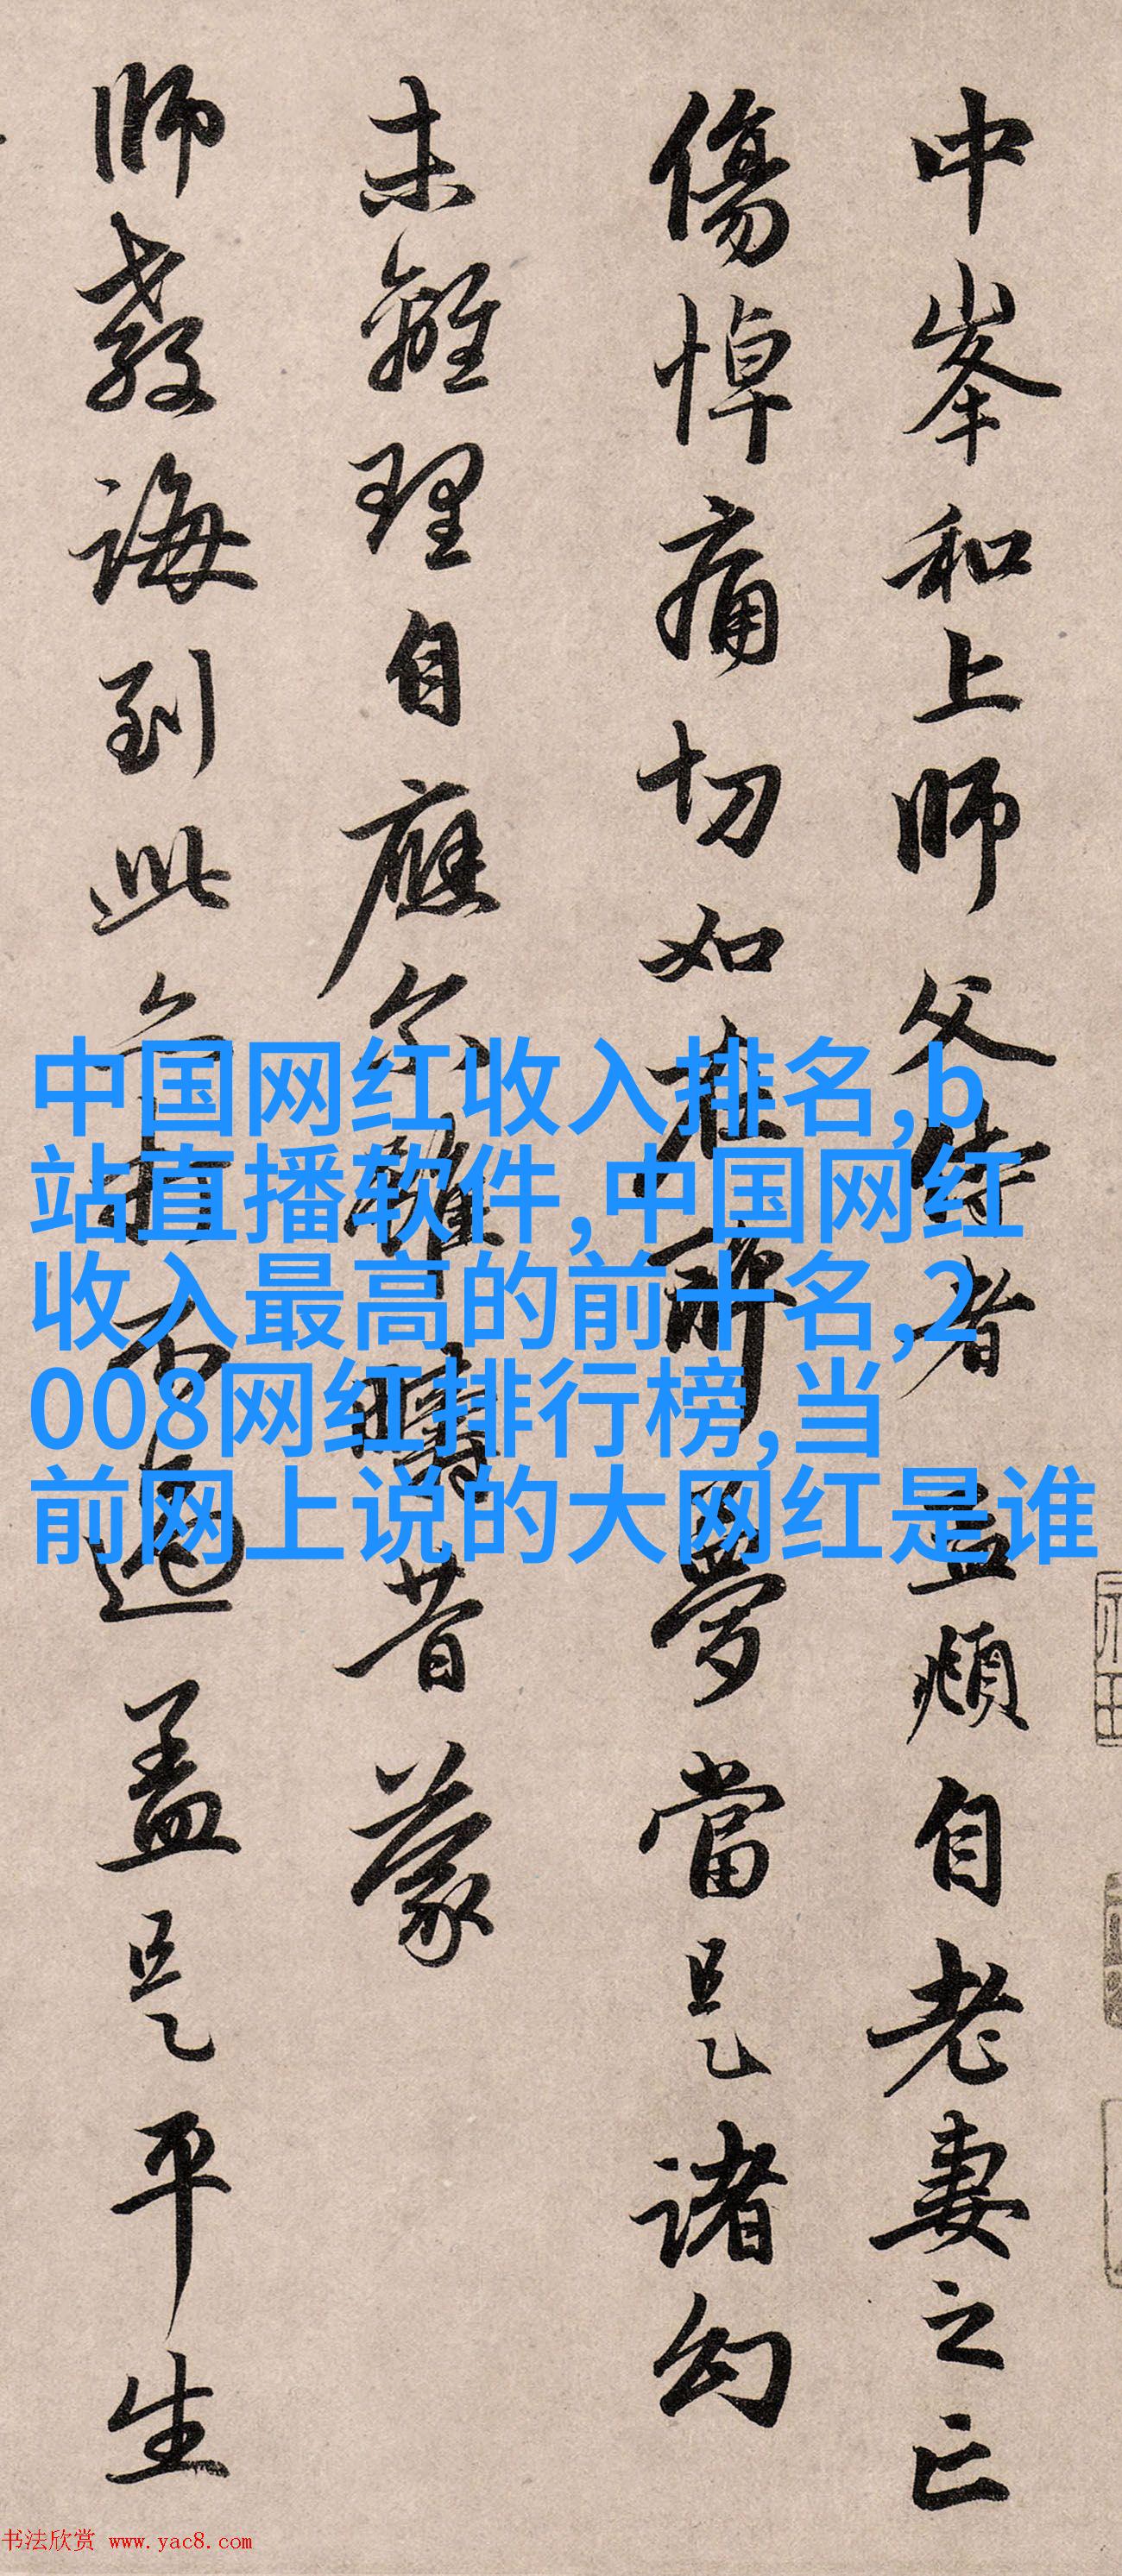 中峯和上師父侍者 孟頫自老妻之亡
傷悼痛切如在醉夢當是諸幻
未離理自應尔雖疇昔蒙
師教誨到此不過盖是平生
中国网红收入排名,b
站直播软件,中国网红
收入最高的前十名,2
008网红排行榜,当
前网上说的大网红是谁
书法欣赏 www.yac8.com